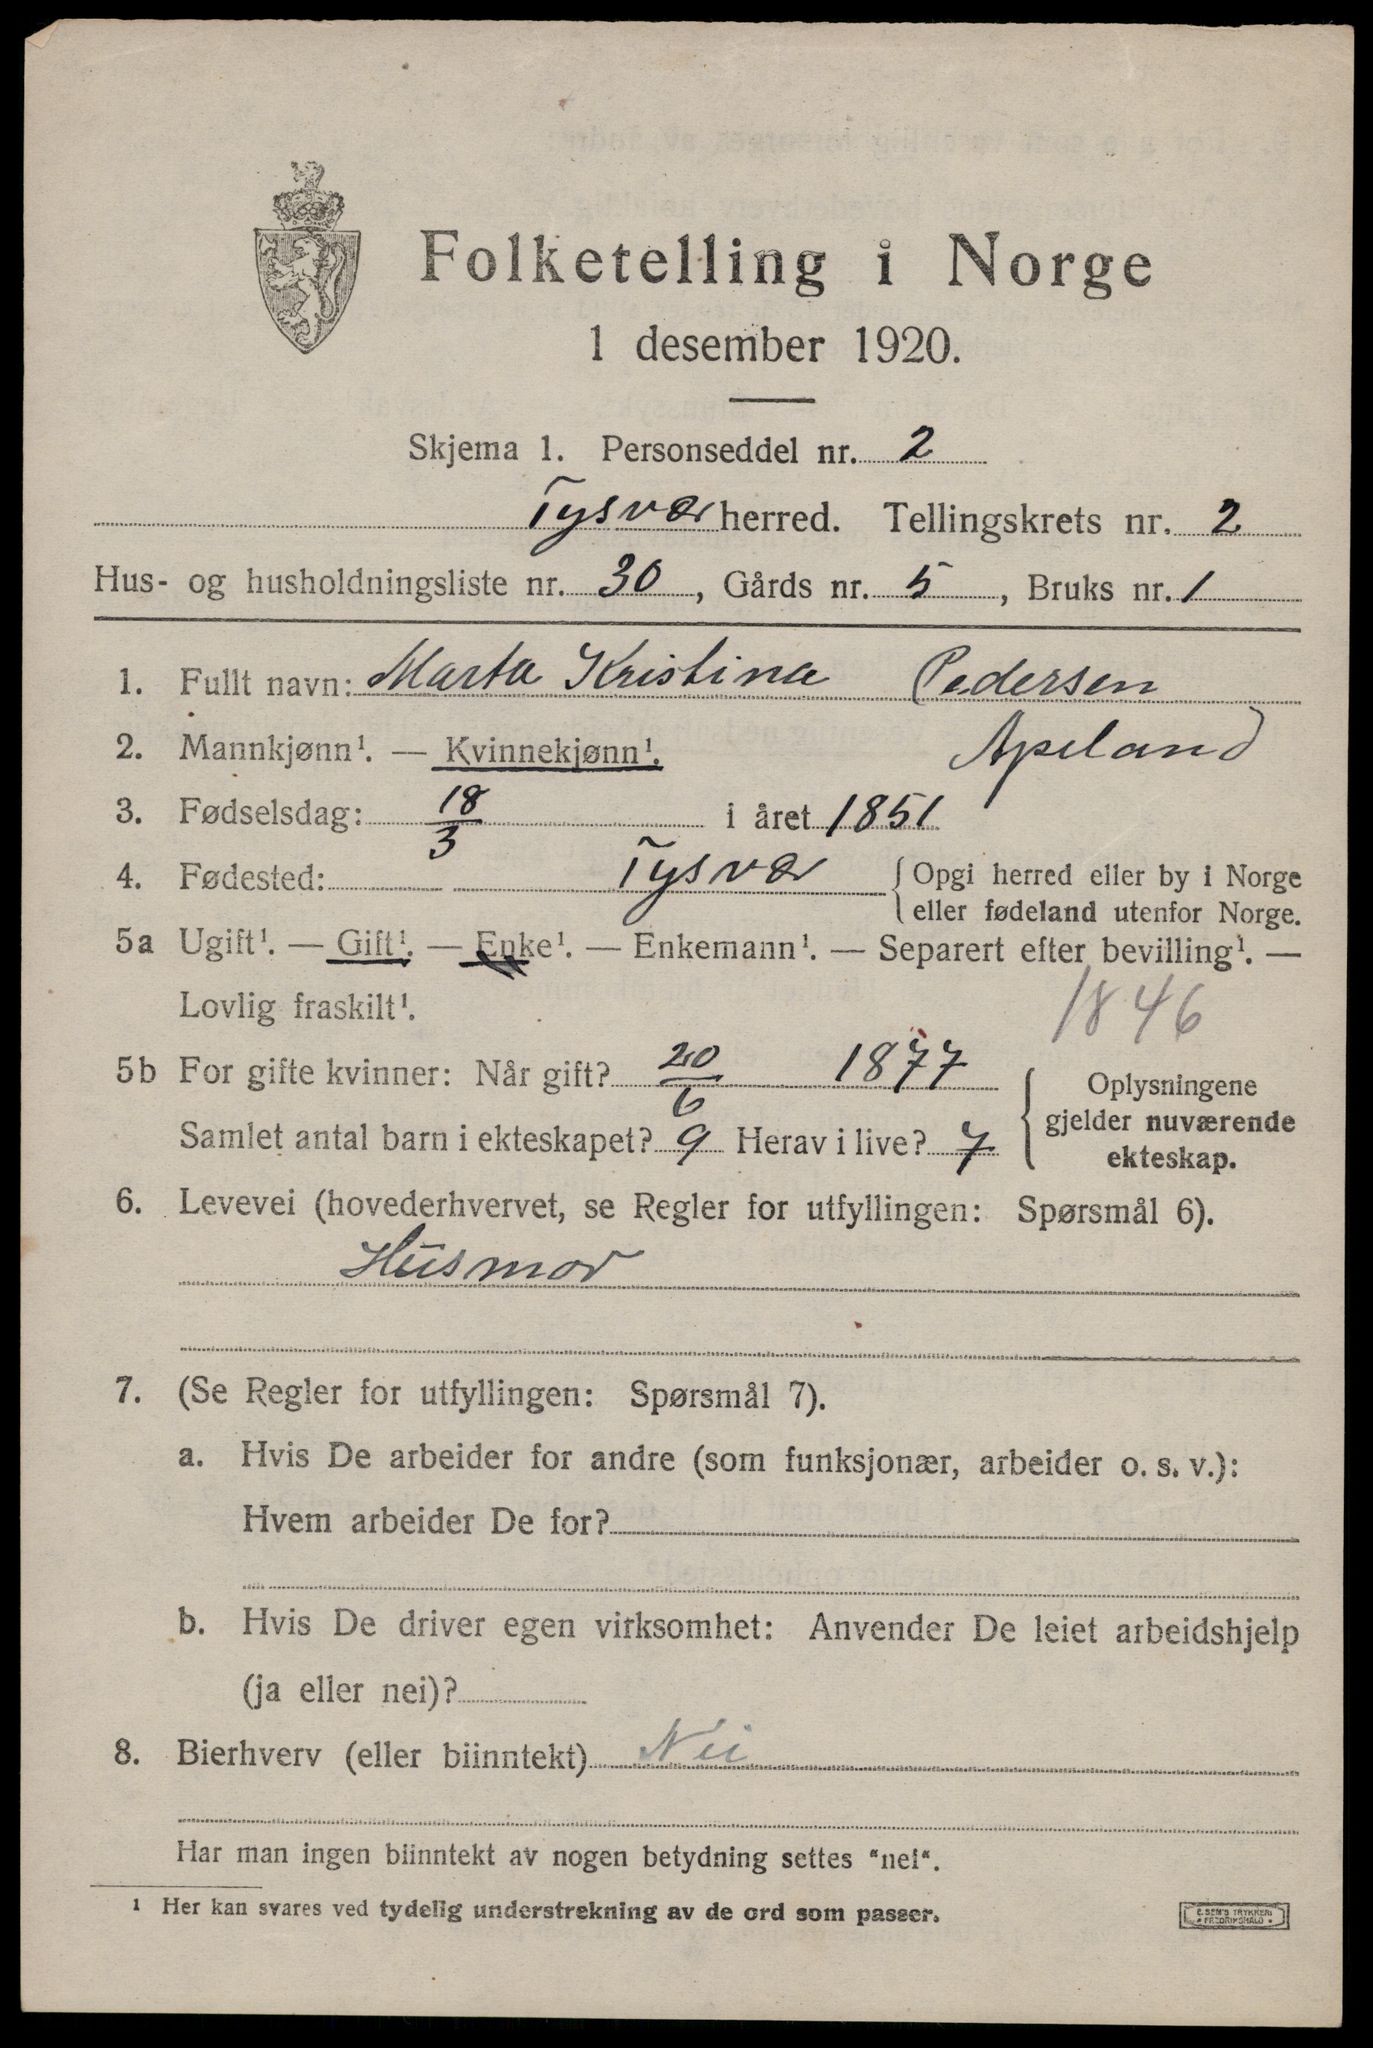 Folketelling i Norge
1 desember 1920.
Skjema 1. Personseddel nr. 2
Tysvær herred. Tellingskrets nr. 2
Hus- og husholdningsliste nr. 30, Gårds nr. 5, Bruks nr. 1
1. Fullt navn: Marta Kristina Pedersen
Apeland
2. Mannkjønn¹. — Kvinnekjønn¹.
3. Fødselsdag: 18/3 i året 1851
4. Fødested: Tysvær { Opgi herred eller by i Norge
eller fødeland utenfor Norge.
5a Ugift¹. — Gift¹. — Enke¹. — Enkemann¹. — Separert efter bevilling¹. —
Lovlig fraskilt¹.
1846
5b For gifte kvinner: Når gift? 20/6 1877
Samlet antal barn i ekteskapet? 9 Herav i live? 7
{ Oplysningene
gjelder nuværende
ekteskap.
6. Levevei (hovederhvervet, se Regler for utfyllingen: Spørsmål 6).
Husmor
7. (Se Regler for utfyllingen: Spørsmål 7).
a. Hvis De arbeider for andre (som funksjonær, arbeider o. s. v.):
Hvem arbeider De for?
b. Hvis De driver egen virksomhet: Anvender De leiet arbeidshjelp
(ja eller nei)?
8. Bierhverv (eller biinntekt) Nei
Har man ingen biinntekt av nogen betydning settes "nei".
¹ Her kan svares ved tydelig understrekning av de ord som passer.
E. SEM'S TRYKKERI
* FREDRIKSHALD *